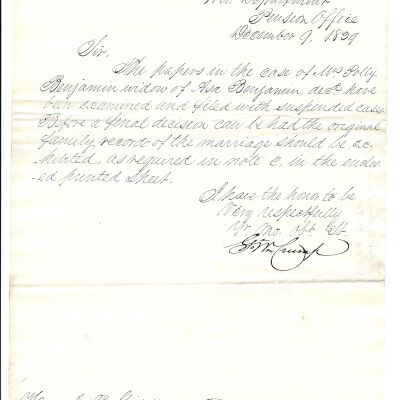 War Department
Pension Office
December 9, 1839
Sir,
The papers in the case of Mrs Polly
Benjamin widow of Asa Benjamin, decd. have
been examined and filed with suspended cases
Before a final decision can be had the original
family record of the marriage should be ex-
hibited, as required in note C, in the enclos-
ed printed sheet.
I have the honor to be
Very respectfully
Yr. Mo. Obt. St.